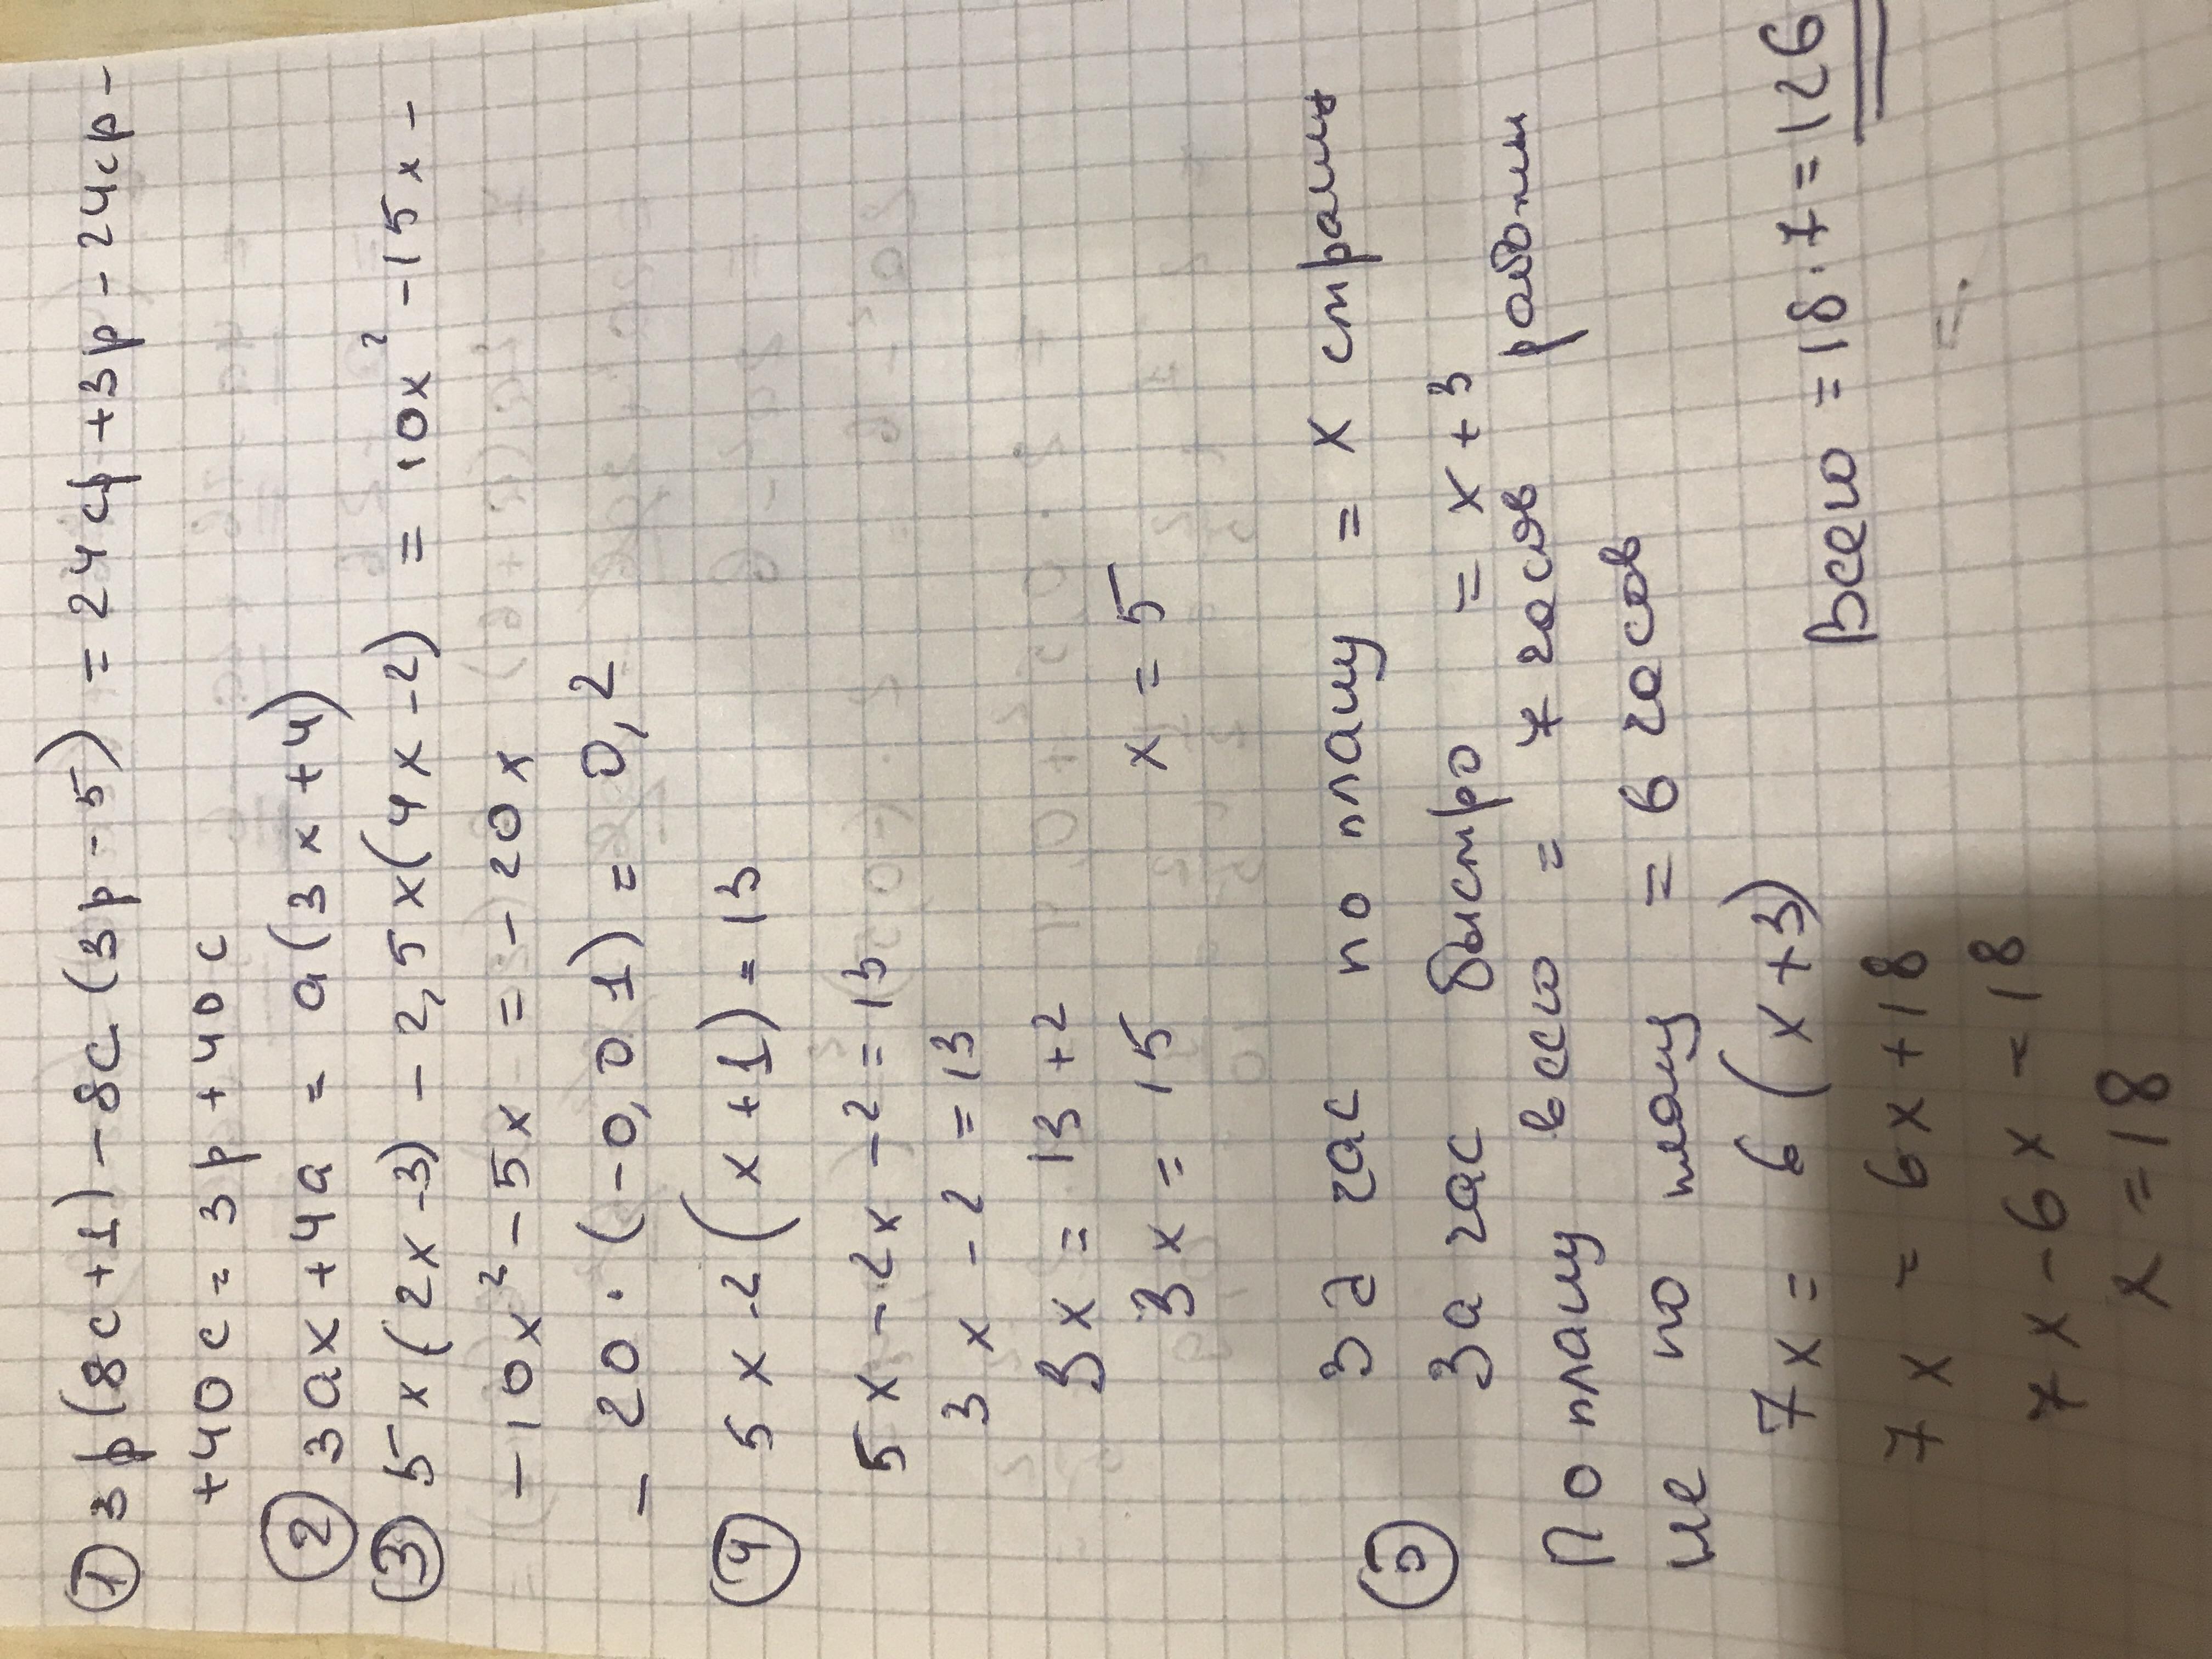 ① 3p(8c+1)-8c(3p-5) = 24cp+3p-24cp-
+40c = 3p+40c
② 3ax+4a = a(3x+4)
③ 5x(2x-3) - 2,5x(4x-2) = 10x²-15x-
-10x²-5x = -20x
-20·(-0,01) = 0,2
④ 5x-2(x+1)=13
5x-2x-2=13
3x-2=13
3x=13+2
3x=15 x=5
За час по плану = x
За час быстро = x+3
По плану всего = 7 часов
не по плану = 6 часов
7x= 6(x+3)
7x = 6x+18
7x-6x=18
x=18
Всего =18·7=126